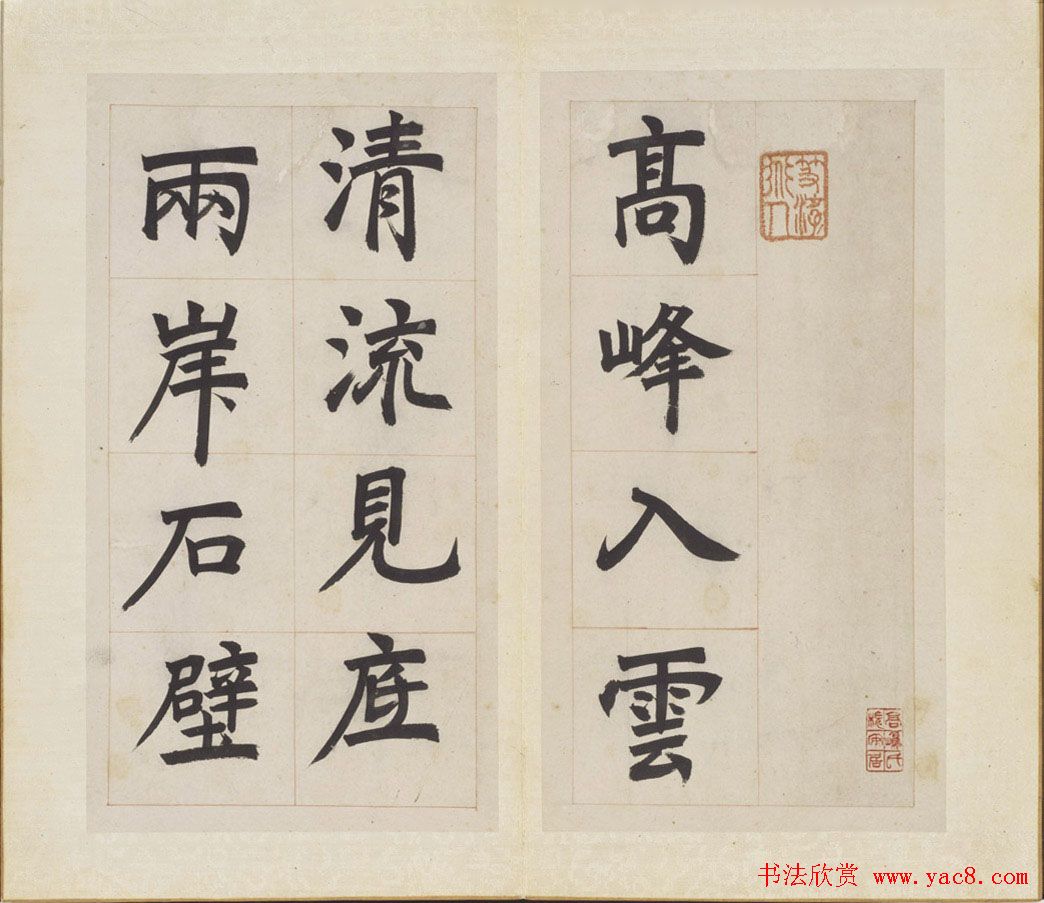 高峰入雲
清流見底
兩岸石壁
书法欣赏 www.yac8.com